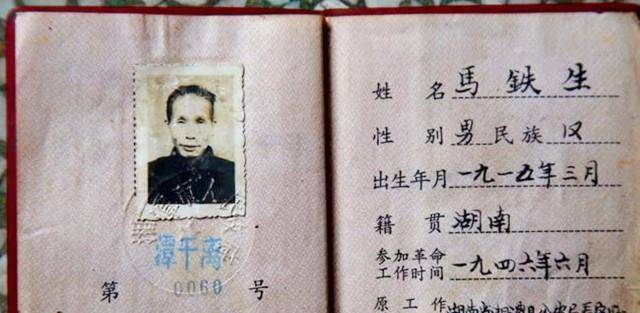 潭干离
第 0060 号
姓名 馬鉄生
性别 男 民族 汉
出生年月 一九一五年三月
籍贯 湖南
参加革命
工作时间 一九四六年六月
原工作